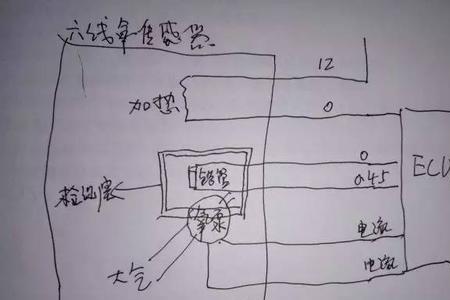 六线氧传感器
12
加热
0
0
锆管
0.45
ECU
检测室
氧泵
电流
大气
电流